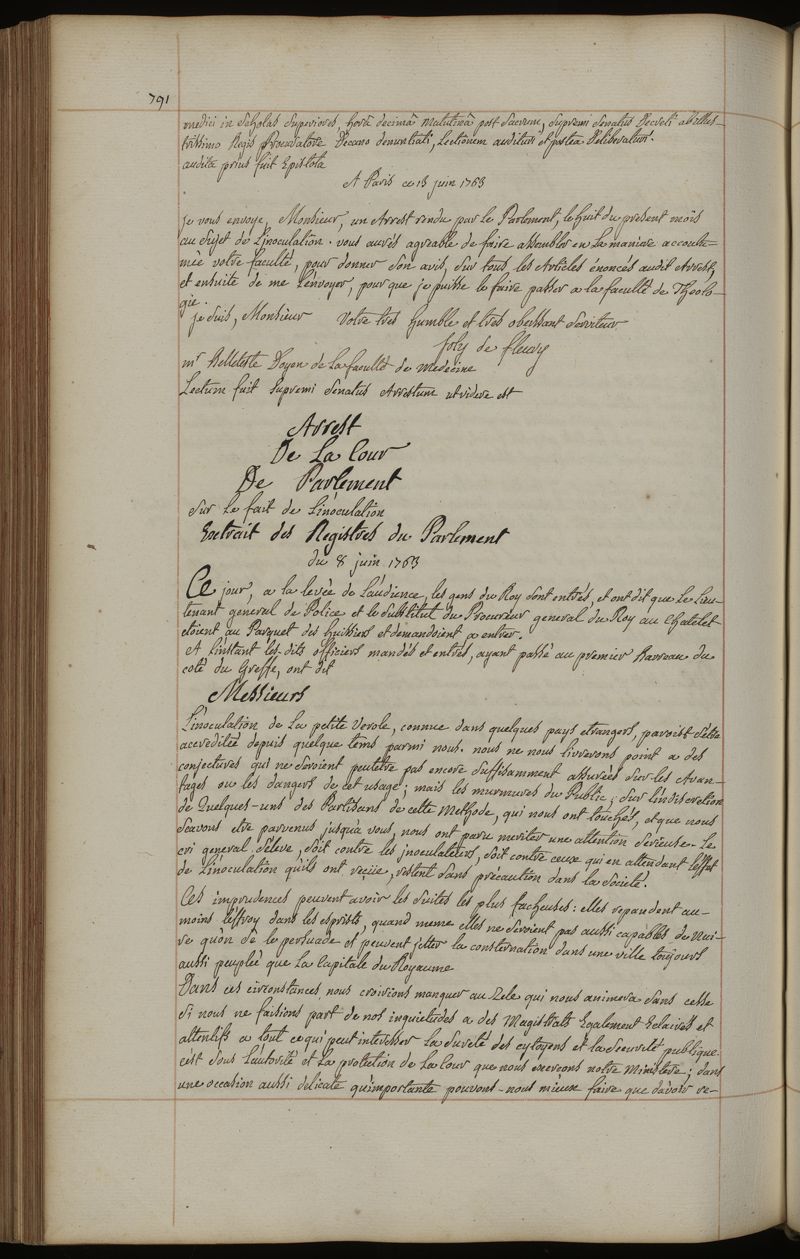 791
medici in Scholas Superiores, horâ decimâ matutinâ post Sacrum, Supremi Senatus Decreti ab illus-
trissimo Regis Procuratore Decano denuntiati, Lectionem audituri et postea Deliberaturi.
audita prius fuit Epistola
A Paris ce 13 juin 1763
je vous envoye, Monsieur, un Arrest rendu par le Parlement, le huit du present mois
au Sujet de L'inoculation. vous aurés agreable de faire assembler en La maniere accoutu=
mée votre faculté, pour donner Son avis, Sur tous les Articles énoncés audit Arrest,
et ensuite de me L'envoyer, pour que je puisse le faire passer a la faculté de Theolo-
gie.
je Suis, Monsieur Votre tres humble et tres obeissant Serviteur
Joly de fleury
mr Belleteste Doyen de La faculté de Medecine
Lectum fuit Supremi Senatus Arrestum ut videre est
Arrest
De La Cour
De Parlement
Sur Le fait de L'inoculation
Extrait des Registres du Parlement
du 8 juin 1763
Ce jour, a la levée de L'audience, les gens du Roy sont entrés, et ont dit que Le Lieu-
tenant general de Police et le Substitut du Procureur general du Roy au Chatelet
etoient au Parquet des huissiers et demandoient a entrer.
A L'instant les dits officiers mandés et entrés, ayant passé au premier Barreau du
coté du Greffe, ont dit
Messieurs
L'inoculation de La petite Verole, connue dans quelques pays etrangers, paroist s'étre
accreditée depuis quelque tems parmi nous. nous ne nous livrerons point a des
conjectures qui ne Seroient peutetre pas encore Suffisamment assurées Sur les Avan-
tages ou les dangers de cet usage; mais les murmures du Public, Sur L'indiscretion
de Quelques-uns des Partisans de cette Methode, qui nous ont touchés, et que nous
Scavons etre parvenus jusqu'a vous, nous ont paru meriter une attention Serieuse. Le
cri general S'éleve, Soit contre les jnoculateurs, Soit contre ceux qui en attendant L'effet
de L'inoculation qu'ils ont reçüe, restent Sans précaution dans la Societé.
Ces imprudences peuvent avoir les Suites les plus facheuses: elles repandent au-
moins L'effroy dans les esprists, quand meme elles ne Seroient pas aussi capables de Nui-
re qu'on Se le persuade et peuvent jetter la consternation dans une ville toujours
aussi peuplée que La Capitale du Royaume
Dans ces circonstances, nous croirions manquer au Zele qui nous animera Sans cesse
Si nous ne faisions part de nos inquietudes a des Magistrats Egalement Eclairés et
attentifs a tout ce qui peut interesser la Sureté des cytoyens et la Securité publique.
c'est Sous L'autorité et La protection de La Cour que nous exerçons notre Ministere; dans
une occasion aussi delicate qu'importante pouvons-nous mieux faire que d'avoir re-